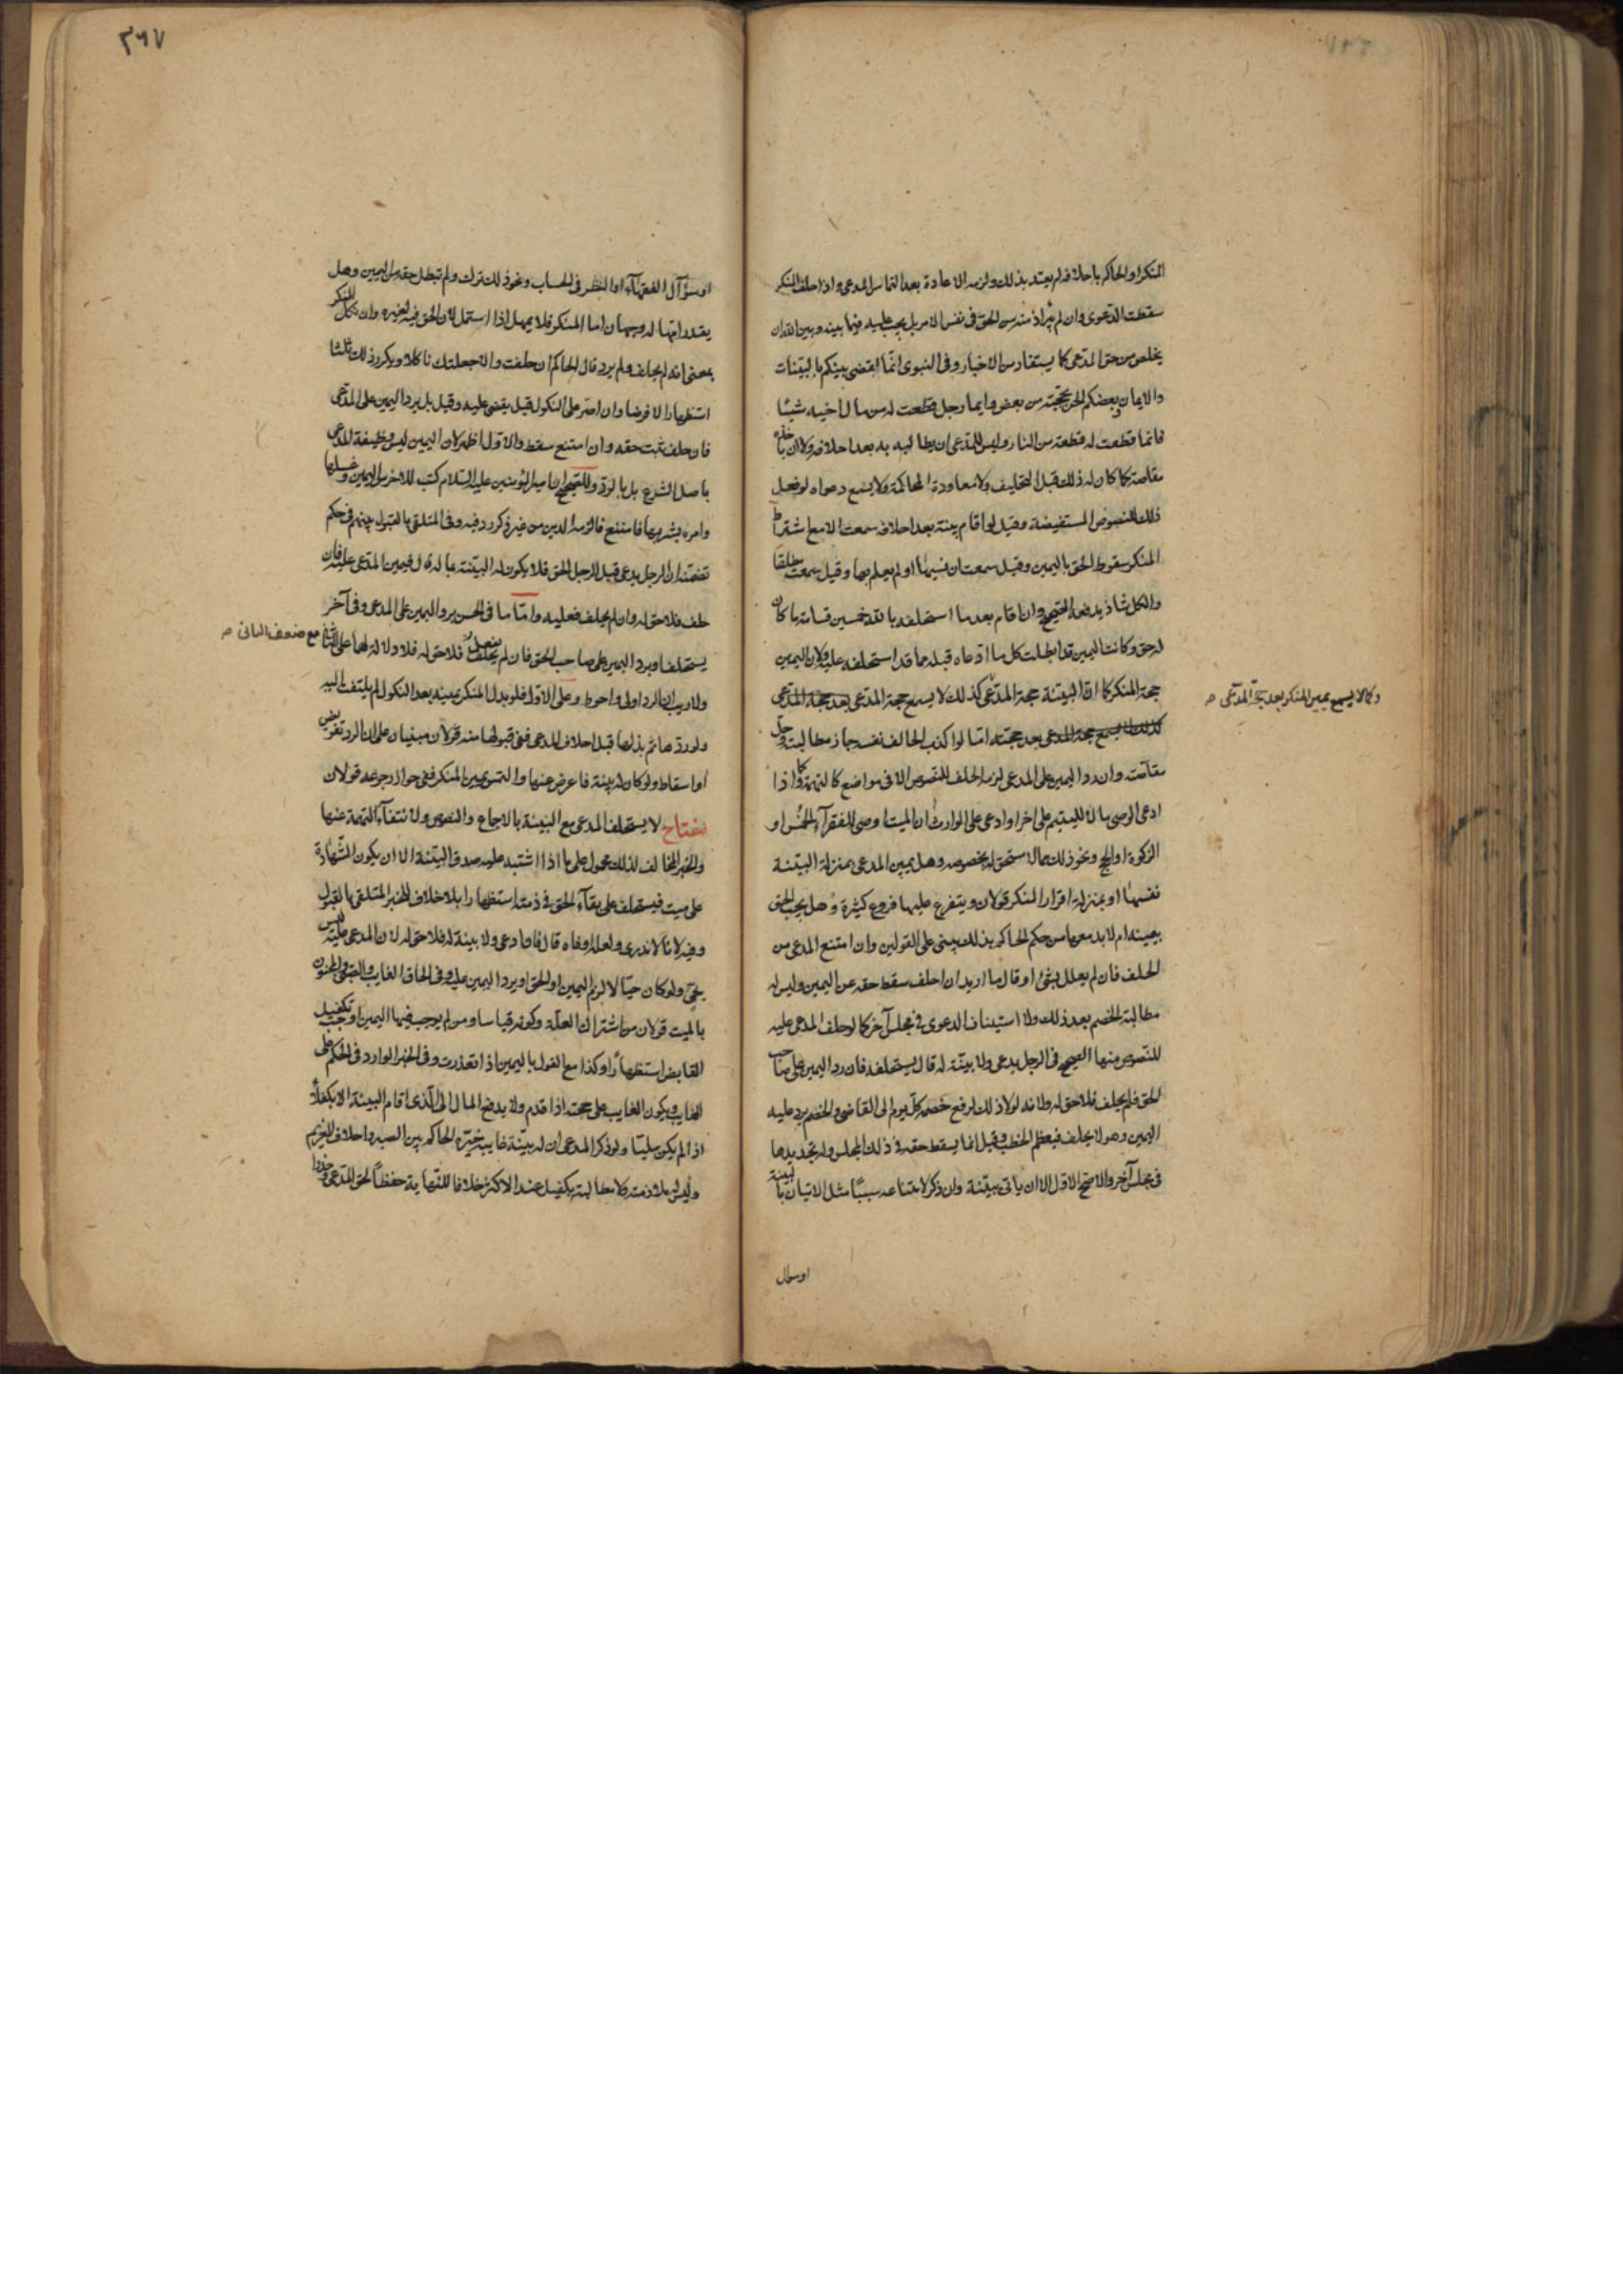 المنكر او الحاكم باحلافه لم يعتد بذلك ولزمه الاعادة بعد التماس المدعى واذا حلف المنكر
سقطت الدعوى وان لم تبرأ ذمته من الحق فى نفس الامر بل يجب عليه فيما بينه وبين الله ان
يتخلص من حق المدعى كما يستفاد من الاخبار وفى النبوى انما اقضى بينكم بالبينات
والايمان وبعضكم الحن بحجته من بعض وايما رجل قطعت له من مال اخيه شيئا
فانما قطعت له قطعة من النار وليس للمدعى ان يطالبه به بعد احلافه ولا ان ياخذ
مقاصة كما كان له ذلك قبل التحليف ولا معاودة المحاكمة ولا يسمع دعواه لو فعل
ذلك للنصوص المستفيضة وقيل لو اقام بينة بعد احلافه سمعت الا مع اشتراط
المنكر سقوط الحق باليمين وقيل سمعت ان نسيها او لم يعلم بها وقيل سمعت مطلقا
والكل شاذ يدفعه الصحيح وان اقام بعد ما استحلفه بالله خمسين قسامة ما كان
له حق وكانت اليمين قد ابطلت كل ما ادعاه قبله مما قد استحلفه عليه ولان اليمين
حجة المنكر كما ان البينة حجة المدعى كذلك لا يسمع حجة المدعى بعد حجة المدعى
وكما لا يسمع يمين المنكر بعد حجة المدعى ص
كذلك لا يسمع حجة المدعى بعد حجته اما لو اكذب الحالف نفسه جاز مطالبته وحل
مقاصته وان رد اليمين على المدعى لزمه الحلف للنصوص الا فى مواضع كالتهمة وكما اذا
ادعى الوصى مالا لليتيم على اخر او ادعى على الوارث ان الميت اوصى للفقراء بالخمس او
الزكوة او الحج ونحو ذلك مما لا مستحق له بخصوصه وهل يمين المدعى بمنزلة البينة
نفسها او بمنزلة اقرار المنكر قولان ويتفرع عليها فروع كثيرة وهل يجب الحق
بيمينه ام لا بد معها من حكم الحاكم بذلك يبنى على القولين وان امتنع المدعى من
الحلف فان لم يعلل بشئ او قال ما اريد ان احلف سقط حقه عن اليمين وليس له
مطالبة الخصم بعد ذلك ولا استيناف الدعوى فى مجلس آخر كما لو حلف المدعى عليه
للنصوص منها الصحيح فى الرجل يدعى ولا بينة له قال يستحلفه فان رد اليمين على صاحب
الحق فلم يحلف فلا حق له ولانه لولا ذلك لرفع خصمه كل يوم الى القاضى والخصم يرد عليه
اليمين وهو لا يحلف فيعظم الخطب وقيل انما يسقط حقه فى ذلك المجلس وله تجديدها
فى مجلس آخر والاصح الاول الا ان ياتى ببينة وان ذكر لامتناعه سببا مثل الاتيان بالبينة
او سوال
٣٦٧
او سؤال الفقهاء او النظر فى الحساب ونحو ذلك ترك ولم تبطل حقه من اليمين وهل
يقدر امهاله وجهان اما المنكر فلا يمهل اذا استمهل لان الحق فيه لغيره وان نكل المنكر
بمعنى انه لم يحلف ولم يرد قال الحاكم ان حلفت والا جعلتك ناكلا ويكرر ذلك ثلثا
استظهارا لا فرضا وان اصر على النكول قيل يقضى عليه وقيل بل يرد اليمين على المدعى
فان حلف ثبت حقه وان امتنع سقط والاول اظهر لان اليمين ليس وظيفة المدعى
باصل الشرع بل بالرد وللصحيح ان امير المؤمنين عليه السلام كتب للاخرس اليمين وغسلها
وامره بشربها فامتنع فالزمه الدين من غير ذكر رد فيه وفى المتلقى بالقبول بينهم فى حكم
تضمنه ان الرجل يدعى قبل الرجل الحق فلا يكون له البينة بما له قال فيمين المدعى عليه فان
حلف فلا حق له وان لم يحلف فعليه واما ما فى الحسن يرد اليمين على المدعى وفى آخر
يستحلف او يرد اليمين على صاحب الحق فان لم يفعل فلا حق له فلا دلالة لهما على الثانى مع ضعف الثانى ص
ولا ريب ان الرد اولى واحوط وعلى الاول فلو بذل المنكر يمينه بعد النكول لم يلتفت اليه
ولو ردها ثم بذلها قبل احلاف المدعى ففى قبولها منه قولان مبنيان على ان الرد تفويض
او اسقاط ولو كان له بينة فاعرض عنها والتمس يمين المنكر ففى جواز رجوعه قولان
مفتاح لا يستحلف المدعى مع البينة بالاجماع والنصوص ولانتفاء التهمة عنها
والخبر المخالف لذلك محمول على ما اذا اشتبه عليه صدق البينة الا ان يكون الشهادة
على ميت فيستحلف على بقاء الحق فى ذمته استظهارا بلا خلاف للخبر المتلقى بالقبول
وفيه لانا لا ندرى ولعله اوفاه قال فان ادعى ولا بينة له فلا حق له لان المدعى عليه ليس
بحى ولو كان حيا لالزم اليمين او الحق او يرد اليمين عليه وفى الحاق الغايب والصبى والمجنون
بالميت قولان من اشتراك العلة وكونه قياسا ومن لم يوجب فيها اليمين اوجب تكفيل
القابض استظهارا وكذا مع القول باليمين اذا تعذرت وفى الخبر الوارد فى الحكم على
الغايب ويكون الغايب على حجته اذا قدم ولا يدفع المال الى الذى اقام البينة الا بكفلاء
اذا لم يكن مليا ولو ذكر المدعى ان له بينة غايبة خيره الحاكم بين الصبر واحلاف الغريم
وليس له ملازمته ولا مطالبته بكفيل عند الاكثر خلافا للنهاية حفظا لحق المدعى